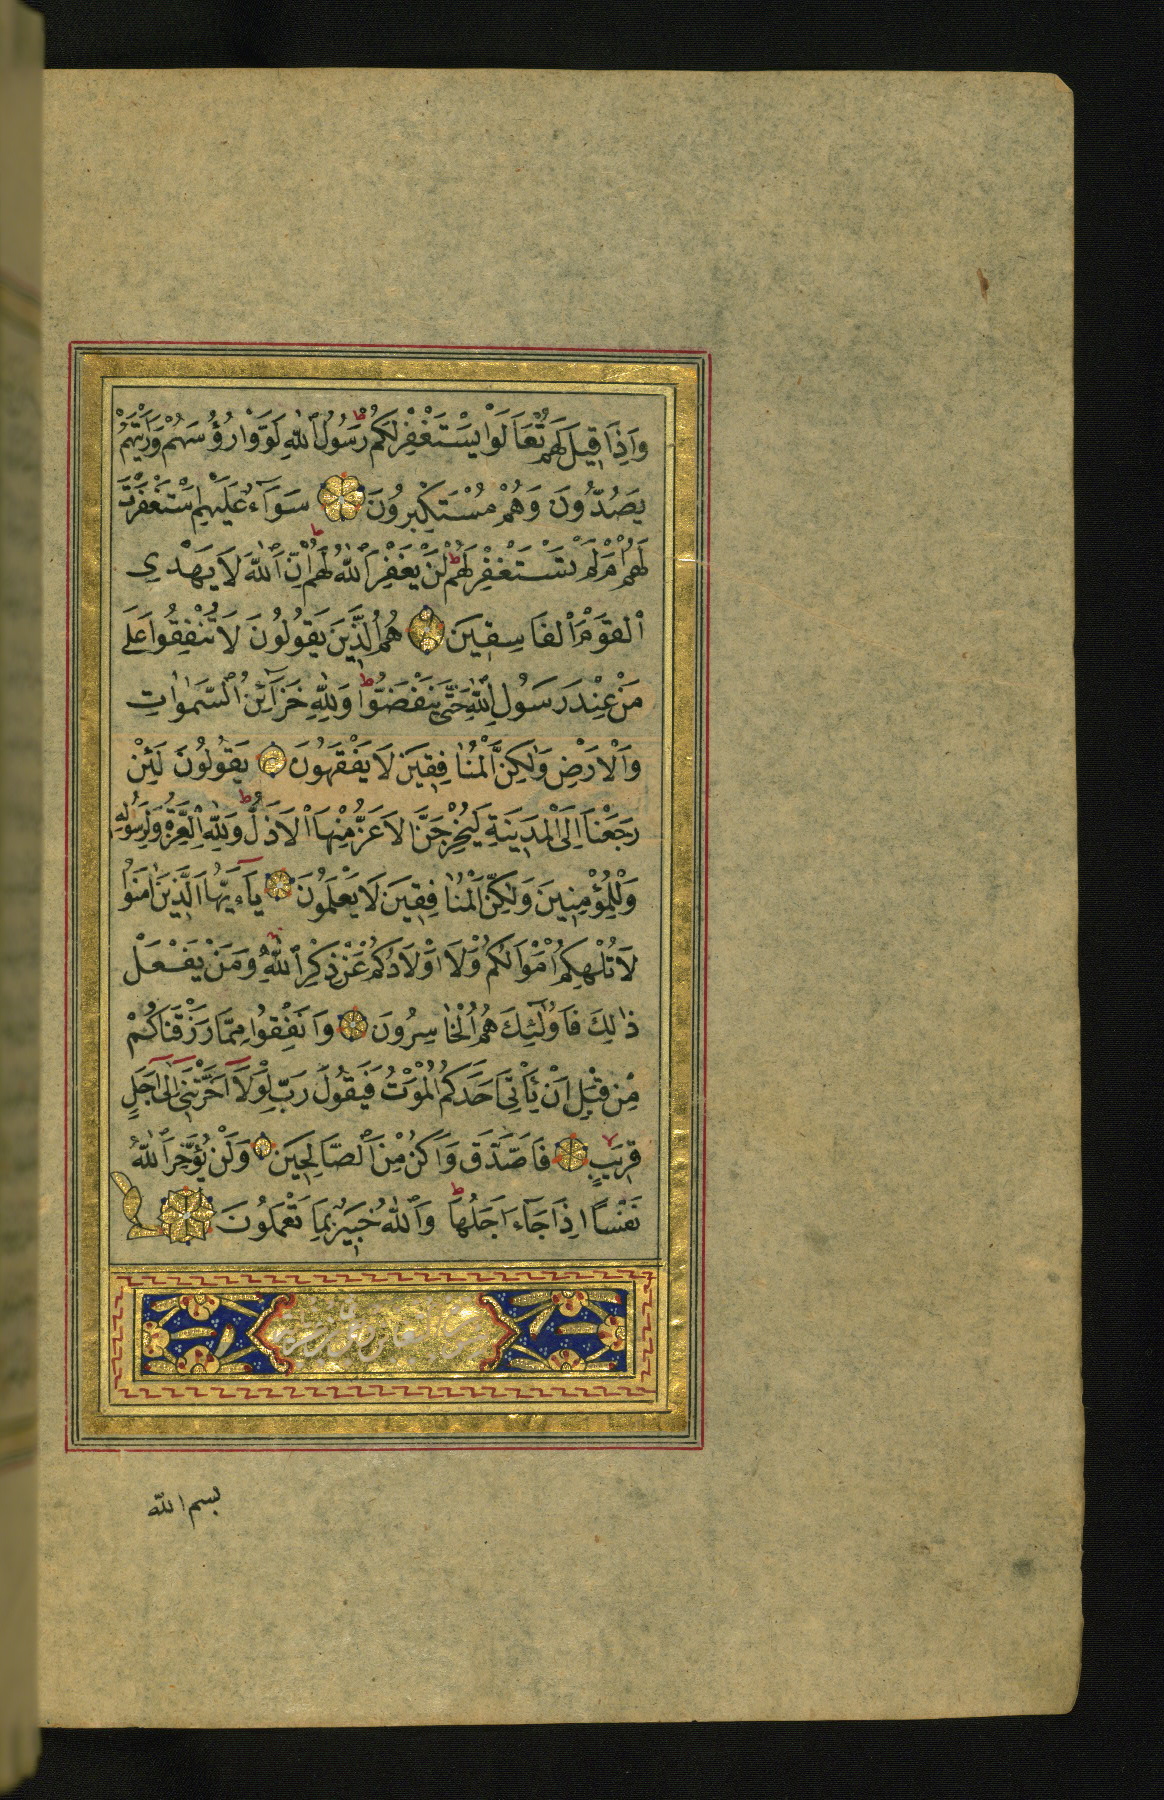 وَاِذَا قِيلَ لَهُمْ تَعَالَوْا يَسْتَغْفِرْ لَكُمْ رَسُولُ اللّٰهِ لَوَّوْا رُؤُسَهُمْ وَرَاَيْتَهُمْ
يَصُدُّونَ وَهُمْ مُسْتَكْبِرُونَ سَوَآءٌ عَلَيْهِمْ اَسْتَغْفَرْتَ
لَهُمْ اَمْ لَمْ تَسْتَغْفِرْ لَهُمْ لَنْ يَغْفِرَ اللّٰهُ لَهُمْ اِنَّ اللّٰهَ لَا يَهْدِى
الْقَوْمَ الْفَاسِقِينَ هُمُ الَّذِينَ يَقُولُونَ لَا تُنْفِقُوا عَلٰى
مَنْ عِنْدَ رَسُولِ اللّٰهِ حَتّٰى يَنْفَضُّوا وَلِلّٰهِ خَزَآئِنُ السَّمٰوَاتِ
وَالْاَرْضِ وَلٰكِنَّ الْمُنَافِقِينَ لَا يَفْقَهُونَ يَقُولُونَ لَئِنْ
رَجَعْنَا اِلَى الْمَدِينَةِ لَيُخْرِجَنَّ الْاَعَزُّ مِنْهَا الْاَذَلَّ وَلِلّٰهِ الْعِزَّةُ وَلِرَسُولِهِ
وَلِلْمُؤْمِنِينَ وَلٰكِنَّ الْمُنَافِقِينَ لَا يَعْلَمُونَ يَآءَيُّهَا الَّذِينَ اٰمَنُوا
لَا تُلْهِكُمْ اَمْوَالُكُمْ وَلَا اَوْلَادُكُمْ عَنْ ذِكْرِ اللّٰهِ وَمَنْ يَفْعَلْ
ذٰلِكَ فَاُولٰٓئِكَ هُمُ الْخَاسِرُونَ وَاَنْفِقُوا مِمَّا رَزَقْنَاكُمْ
مِنْ قَبْلِ اَنْ يَأْتِىَ اَحَدَكُمُ الْمَوْتُ فَيَقُولَ رَبِّ لَوْلَآ اَخَّرْتَنِى اِلٰٓى اَجَلٍ
قَرِيبٍ فَاَصَّدَّقَ وَاَكُنْ مِنَ الصَّالِحِينَ وَلَنْ يُؤَخِّرَ اللّٰهُ
نَفْسًا اِذَا جَآءَ اَجَلُهَا وَاللّٰهُ خَبِيرٌ بِمَا تَعْمَلُونَ
بسم الله